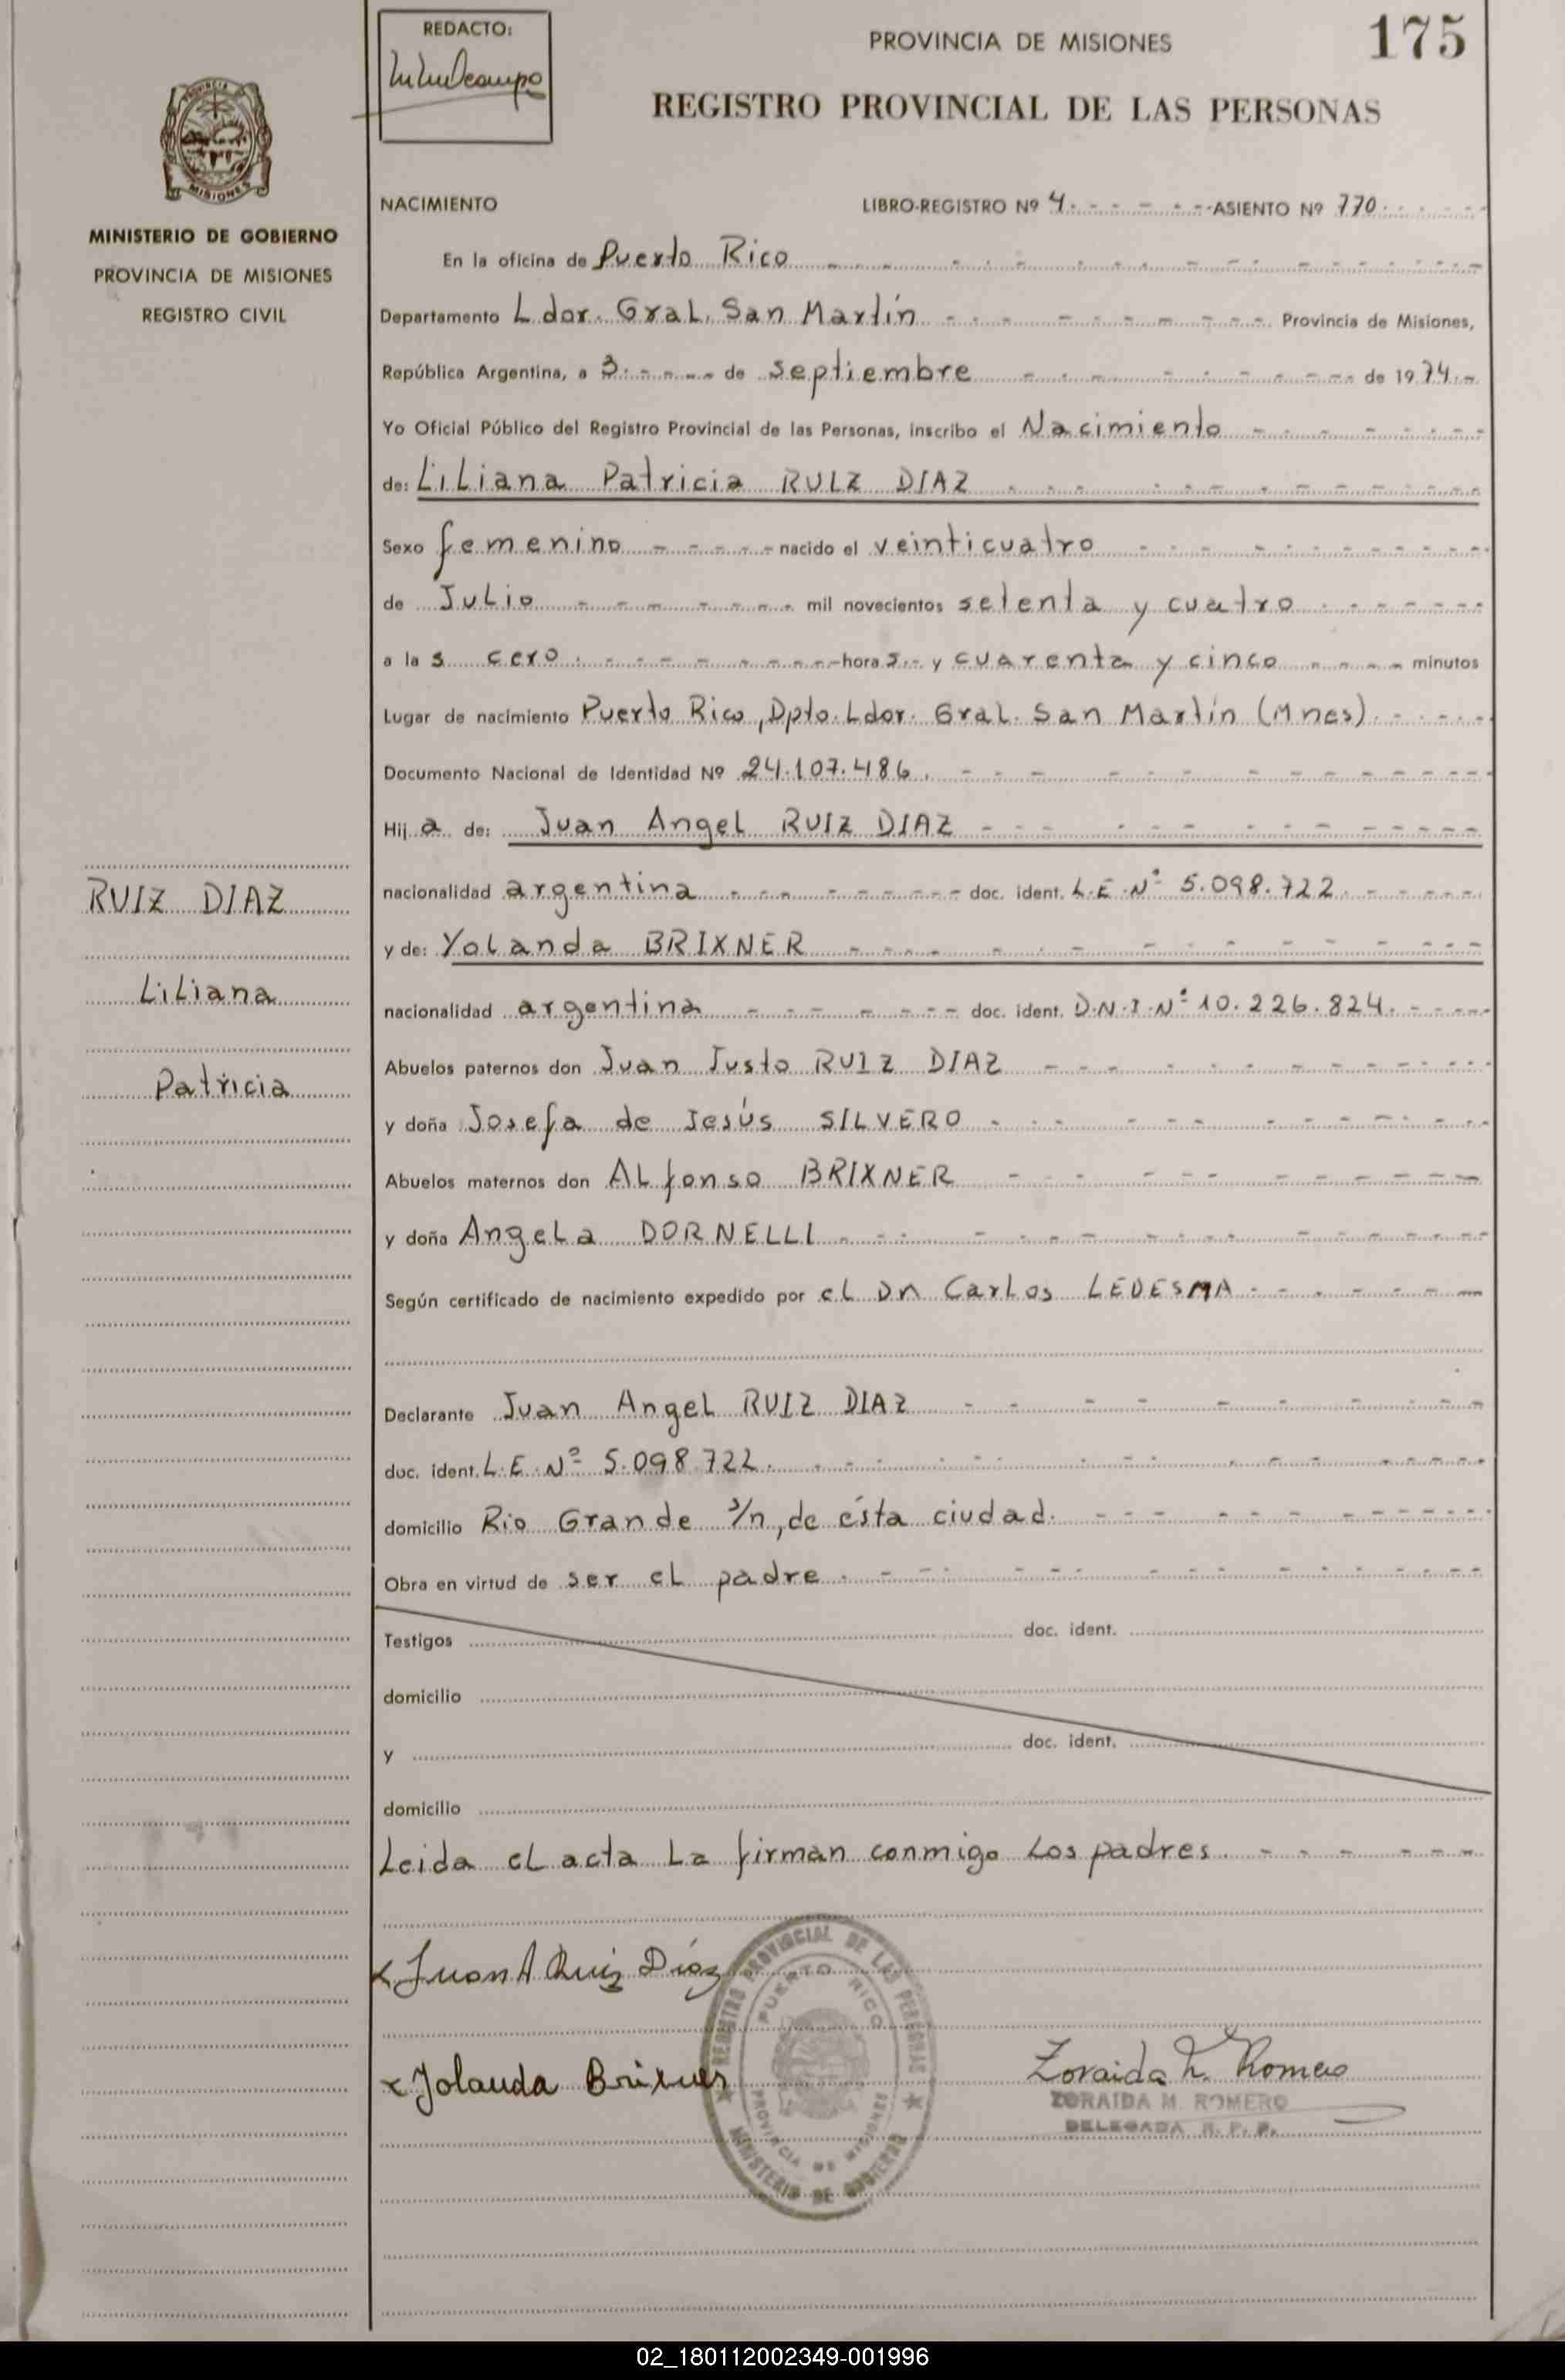 REDACTO:
PROVINCIA DE MISIONES
175
REGISTRO PROVINCIAL DE LAS PERSONAS
PROVINCIA DE
MISIONES
MINISTERIO DE GOBIERNO
PROVINCIA DE MISIONES
REGISTRO CIVIL
NACIMIENTO LIBRO-REGISTRO Nº 4 ASIENTO Nº 770
En la oficina de Puerto Rico
Departamento Ldor. Gral. San Martín Provincia de Misiones,
República Argentina, a 3 de septiembre de 1974
Yo Oficial Público del Registro Provincial de las Personas, inscribo el Nacimiento
de: Liliana Patricia RUIZ DIAZ
Sexo femenino nacido el veinticuatro
de Julio mil novecientos setenta y cuatro
a las cero horas y cuarenta y cinco minutos
Lugar de nacimiento Puerto Rico, Dpto. Ldor. Gral. San Martín (Mnes).
Documento Nacional de Identidad Nº 24.107.486.
Hija de: Juan Angel RUIZ DIAZ
nacionalidad argentina doc. ident. L.E.Nº 5.098.722.
y de: Yolanda BRIXNER
nacionalidad argentina doc. ident. D.N.I.Nº 10.226.824.
Abuelos paternos don Juan Justo RUIZ DIAZ
y doña Josefa de Jesús SILVERO
Abuelos maternos don Alfonso BRIXNER
y doña Angela DORNELLI
Según certificado de nacimiento expedido por el Dn Carlos LEDESMA
Declarante Juan Angel RUIZ DIAZ
doc. ident. L.E.Nº 5.098.722.
domicilio Rio Grande s/n, de ésta ciudad.
Obra en virtud de ser el padre.
Testigos doc. ident.
domicilio
y doc. ident.
domicilio
Leida el acta la firman conmigo los padres.
RUIZ DIAZ
Liliana
Patricia
x Juan A Ruiz Díaz
x Yolanda Brixner
REGISTRO PROVINCIAL DE LAS PERSONAS
PUERTO RICO
PROVINCIA DE MISIONES
MINISTERIO DE GOBIERNO
Zoraida M. Romero
ZORAIDA M. ROMERO
DELEGADA R. P. P.
02_180112002349-001996